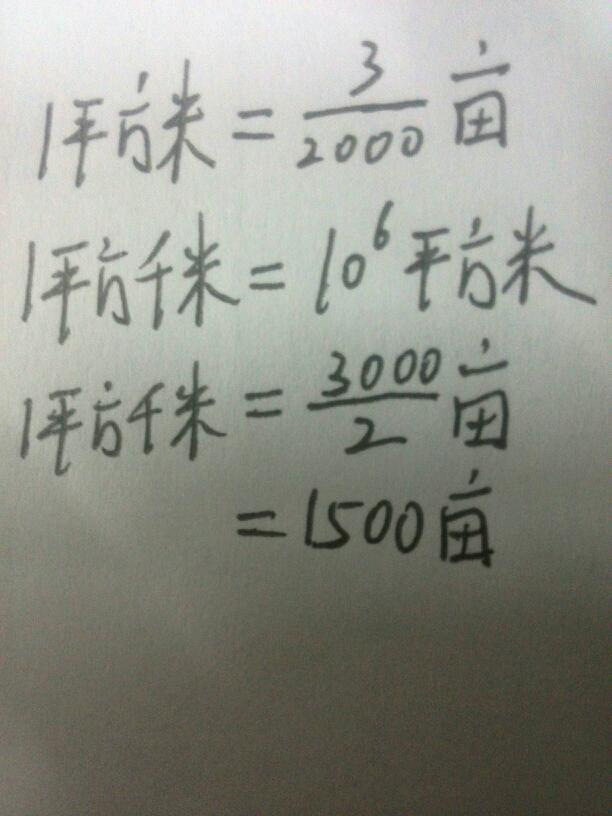 1平方米=3/2000亩
1平方千米=10⁶平方米
1平方千米=3000/2亩
=1500亩